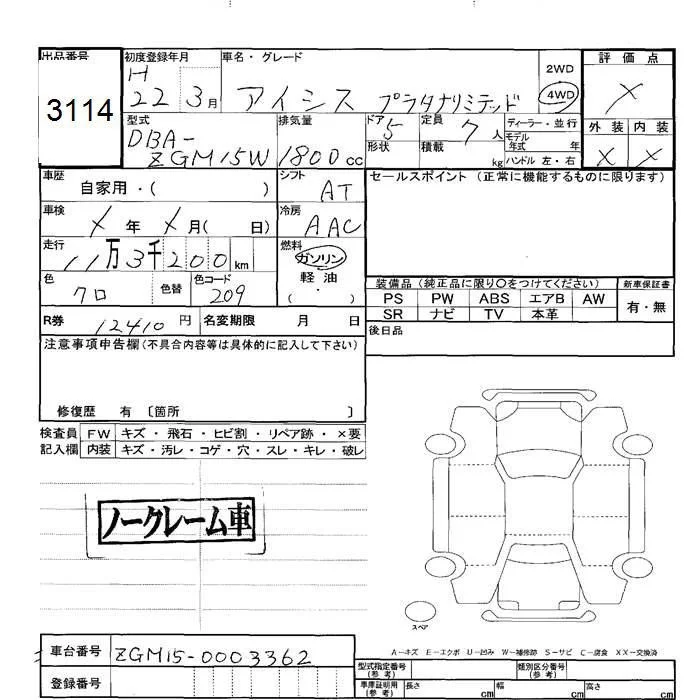 出品番号 初度登録年月 車名・グレード 評価点
3114
H 22 3月 アイシス プラタナリミテッド 2WD 4WD X
型式 排気量 ドア 定員 ディーラー・並行 外装 内装
DBA-ZGM15W 1800cc 5 7人 モデル年式 年 X X
形状 積載 kg ハンドル 左・右
車歴 シフト セールスポイント (正常に機能するものに限ります)
自家用・( ) AT
車検 冷房
X 年 X 月( 日) AAC
走行 燃料
11万3千200km ガソリン
軽油
( ・ )
色 色替 色コード 装備品 (純正品に限り〇をつけてください) 新車保証書
クロ 209 PS PW ABS エアB AW 有・無
SR ナビ TV 本革
R券 12410円 名変期限 月 日 後日品
注意事項申告欄(不具合内容等は具体的に記入して下さい)
修復歴 有 〔箇所 〕
検査員 FW キズ・飛石・ヒビ割・リペア跡・×要
記入欄 内装 キズ・汚レ・コゲ・穴・スレ・キレ・破レ
ノークレーム車
スペア
A-キズ E-エクボ U-凹み W-補修跡 S-サビ C-腐食 XX-交換済
車台番号 ZGM15-0003362
型式指定番号(参考) 類別区分番号(参考)
登録番号 車庫証明用(参考) 長さ cm 幅 cm 高さ cm